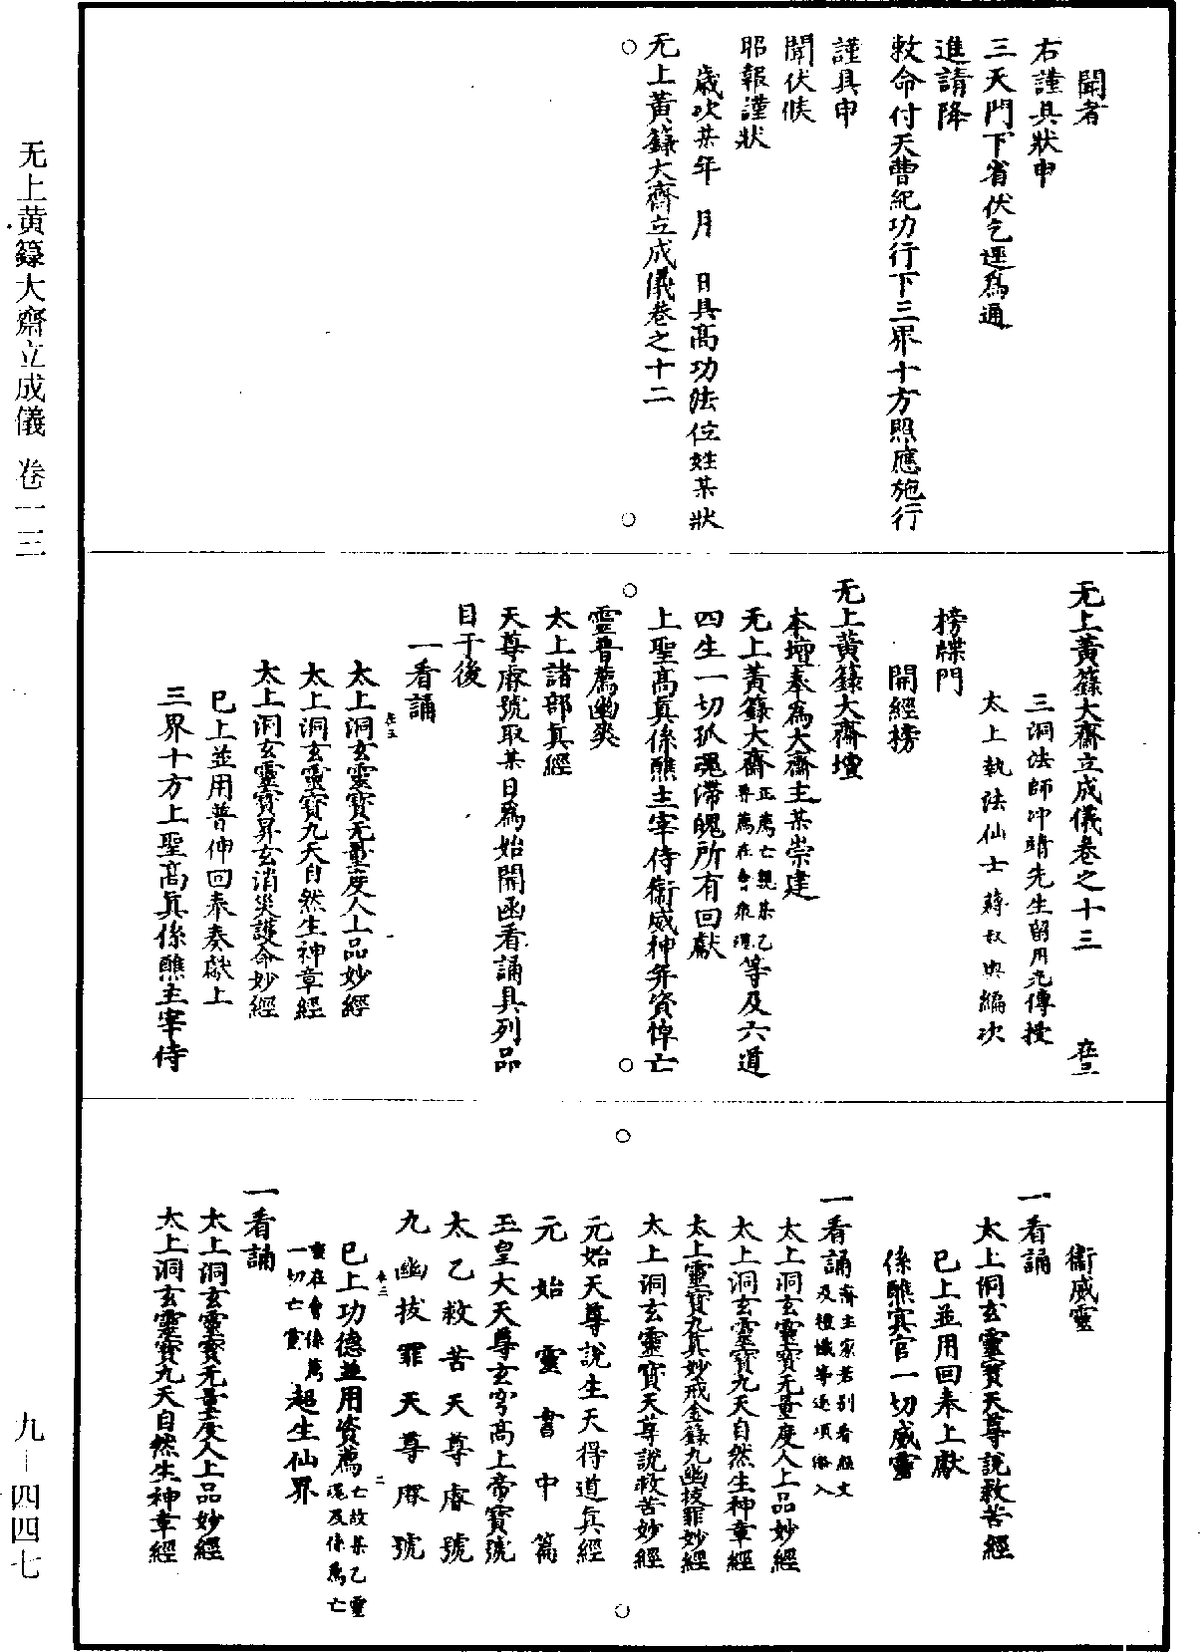 聞者
右謹具狀申
三天門下省伏乞逕爲通
進請降
敕命付天曹紀功行下三界十方照應施行
謹具申
聞伏候
昭報謹狀
歲次某年 月 日具高功法位姓某狀
无上黃籙大齋立成儀卷之十二
无上黃籙大齋立成儀卷之十三
三洞法師沖靖先生留用光傳授
太上執法仙士蔣叔輿編次
榜牒門
開經榜
无上黃籙大齋壇
本壇奉爲大齋主某崇建
无上黃籙大齋正薦亡親某乙等及六道
四生一切孤魂滯魄所有回獻
上聖高眞係醮主宰侍衞威神并資悼亡
靈普薦幽爽
太上諸部眞經
天尊尊號取某日爲始開函看誦具列品
目于後
一看誦
太上洞玄靈寶无量度人上品妙經
太上洞玄靈寶九天自然生神章經
太上洞玄靈寶昇玄消災護命妙經
已上並用普伸回奉奏獻上
三界十方上聖高眞係醮主宰侍
衞威靈
一看誦
太上洞玄靈寶天尊說救苦經
已上並用回奉上獻
係醮冥官一切威靈
一看誦齋主家若別看經文及禮懺等逐項添入
太上洞玄靈寶无量度人上品妙經
太上洞玄靈寶九天自然生神章經
太上靈寶九眞妙戒金籙九幽拔罪妙經
太上洞玄靈寶天尊說救苦妙經
元始天尊說生天得道眞經
元始靈書中篇
玉皇大天尊玄穹高上帝寶號
太乙救苦天尊尊號
九幽拔罪天尊尊號
已上功德並用資薦亡故某乙靈魂及係薦亡靈在會係薦一切亡靈超生仙界
一看誦
太上洞玄靈寶无量度人上品妙經
太上洞玄靈寶九天自然生神章經
无上黄籙大齋立成儀 卷一三
九—四四七